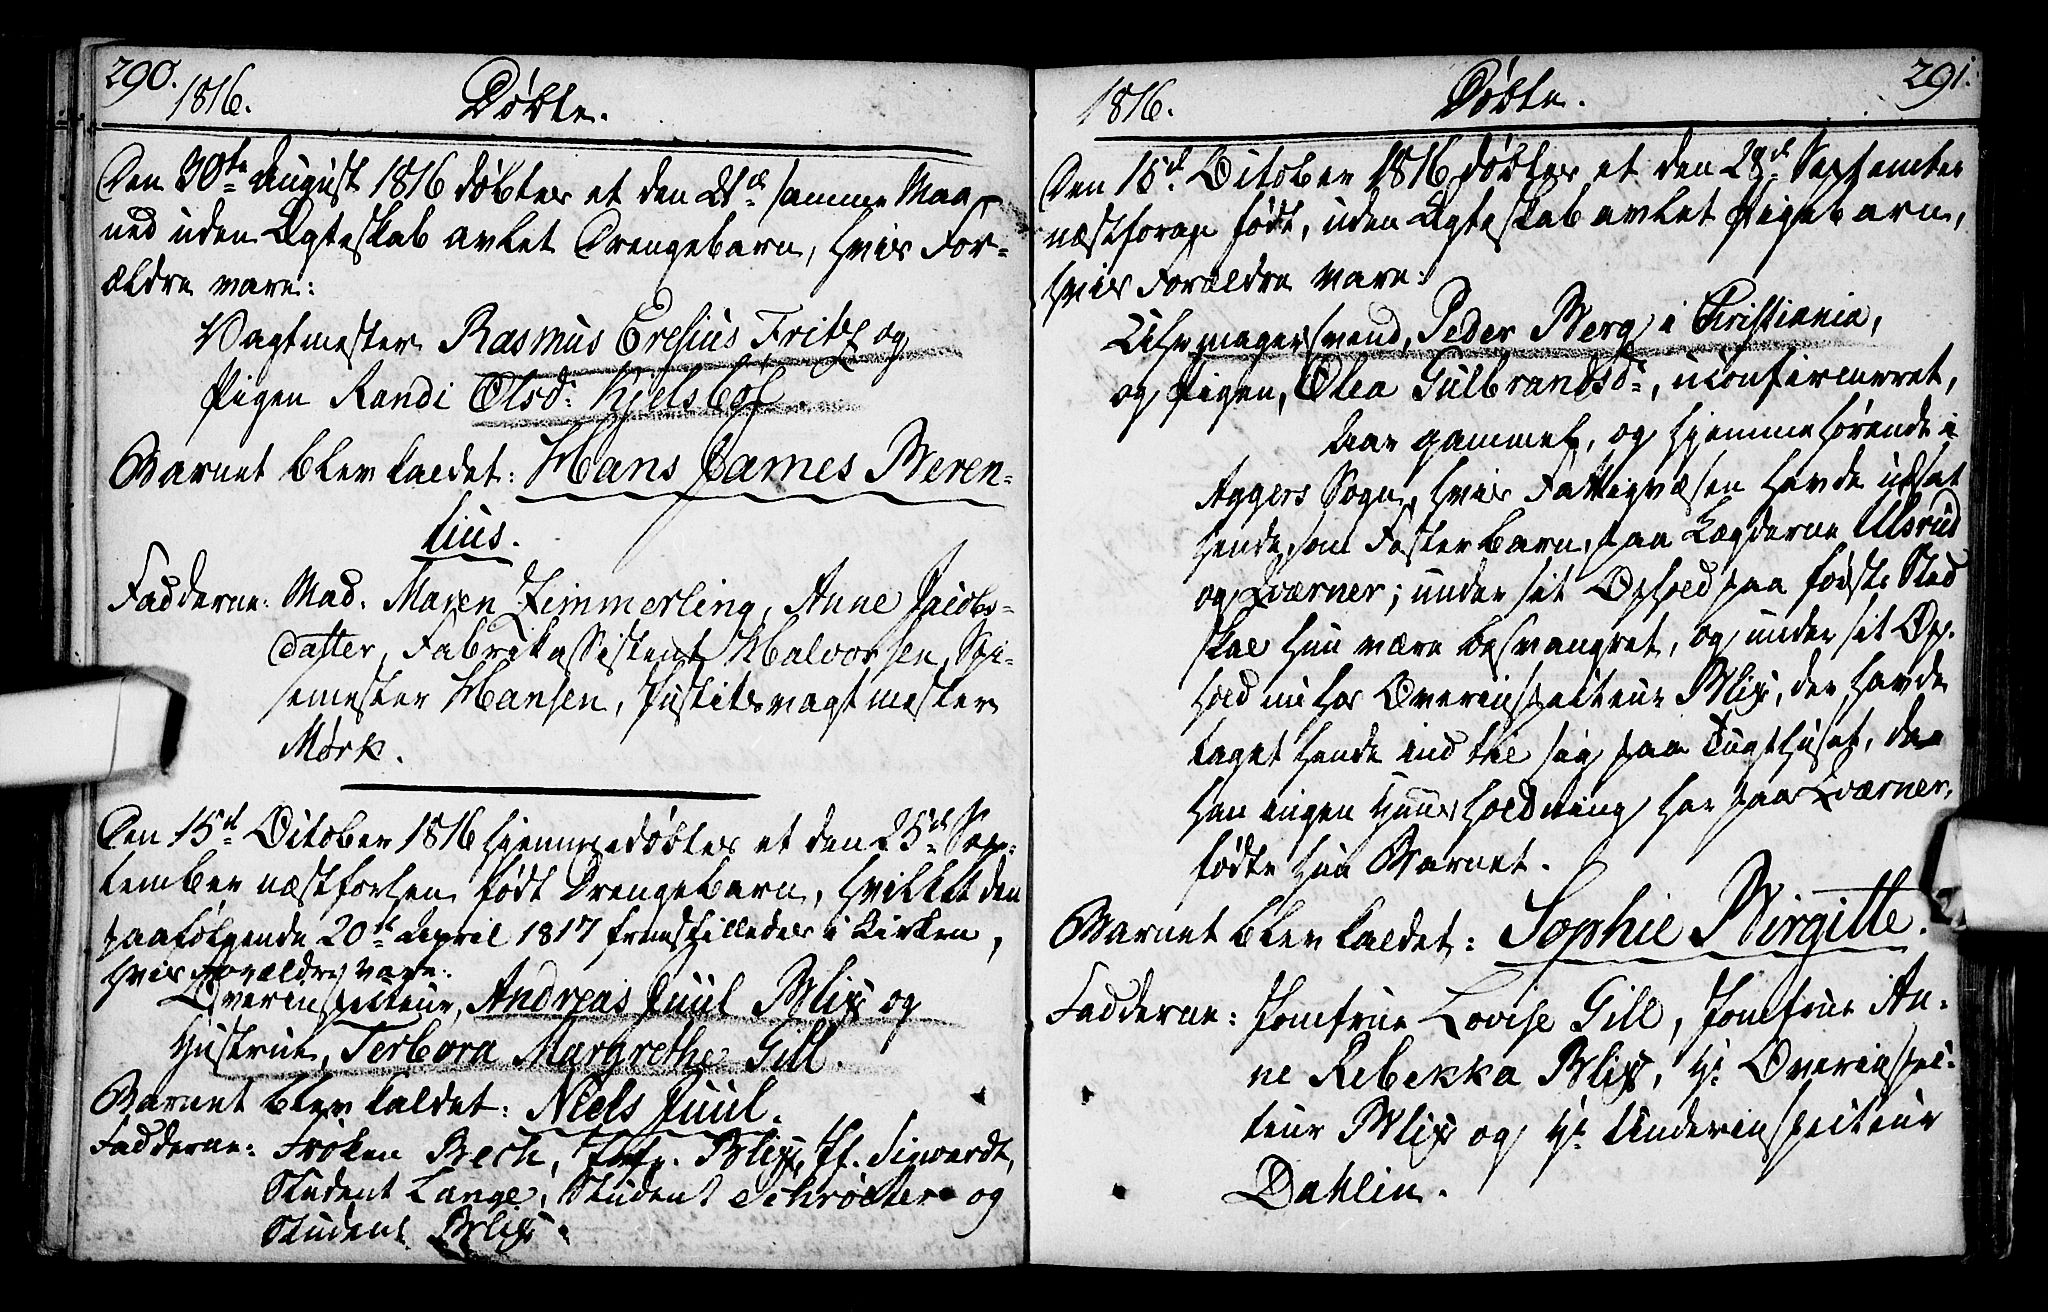 290.
1816.
Døbte.
Den 30te August 1816 døbtes et den 21de samme Maa-
ned uden Ægteskab avlet Drengebarn, hvis For-
ældre vare:
Vagtmester Rasmus Eresius Fritz og
Pigen Randi Olsd: Kjelsbøl.
Barnet blev kaldet: Hans James Beren-
tius.
Fadderne: Mad. Maren Zimmerling, Anne Jacobs-
datter, Fabrikassistent Halvorsen, Spi-
semester Hansen, Justitsvagtmester
Mørk.
Den 15d October 1816 hjemmedøbtes et den 25d Sep-
tember næstforhen født Drengebarn, hvilket den
paafølgende 20de April 1817 fremstilledes i Kirken,
hvis Forældre vare:
Overinspecteur, Andreas Juul Blix og
Hustrue, Terbora Margrethe Gill.
Barnet blev kaldet: Niels Juul.
Fadderne: Frøken Bech, Jomfr. Blix, Hf. Sigwardt,
Student Lange, Student Schrøeter og
Student Blix.
1816.
Døbte.
291.
Den 15d October 1816 døbtes et den 28d September
næstforan født, uden Ægteskab avlet Pigebarn,
hvis Forældre vare:
Uhrmagersvend, Peder Berg i Christiania,
og Pigen, Olea Gulbrandsd:, uconfirmeret,
Aar gammel, og hjemmehørende i
Aggers Sogn, hvis Fattigvæsen havde udsat
hende som Fosterbarn, paa Løkkerne Ulsrud
og Qværner; under sit Ophold paa første Sted
skal hun være besvangret, og under sit Op-
hold nu hos Overinspecteur Blix, der havde
taget hende ind til sig paa Tugthuset, da
han ingen Huusholdning har paa Qværner,
fødte hun Barnet.
Barnet blev kaldet: Sophie Birgitte.
Fadderne: Jomfrue Lovise Gill, Jomfrue An-
ne Rebekka Blix, Hr Overinspec-
teur Blix og Hr Underinspecteur
Dahlin.